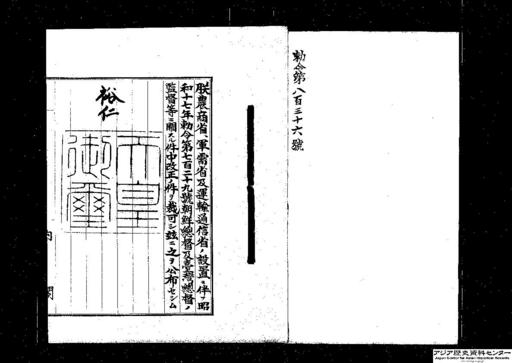 勅令第八百三十六號
朕農商省、軍需省及運輸通信省ノ設置ニ伴フ昭
和十七年勅令第七百二十九號朝鮮總督及臺灣總督ノ
監督等ニ關スル件中改正ノ件ヲ裁可シ茲ニ之ヲ公布セシム
裕仁
天皇
御璽
内閣
アジア歴史資料センター
Japan Center for Asian Historical Records